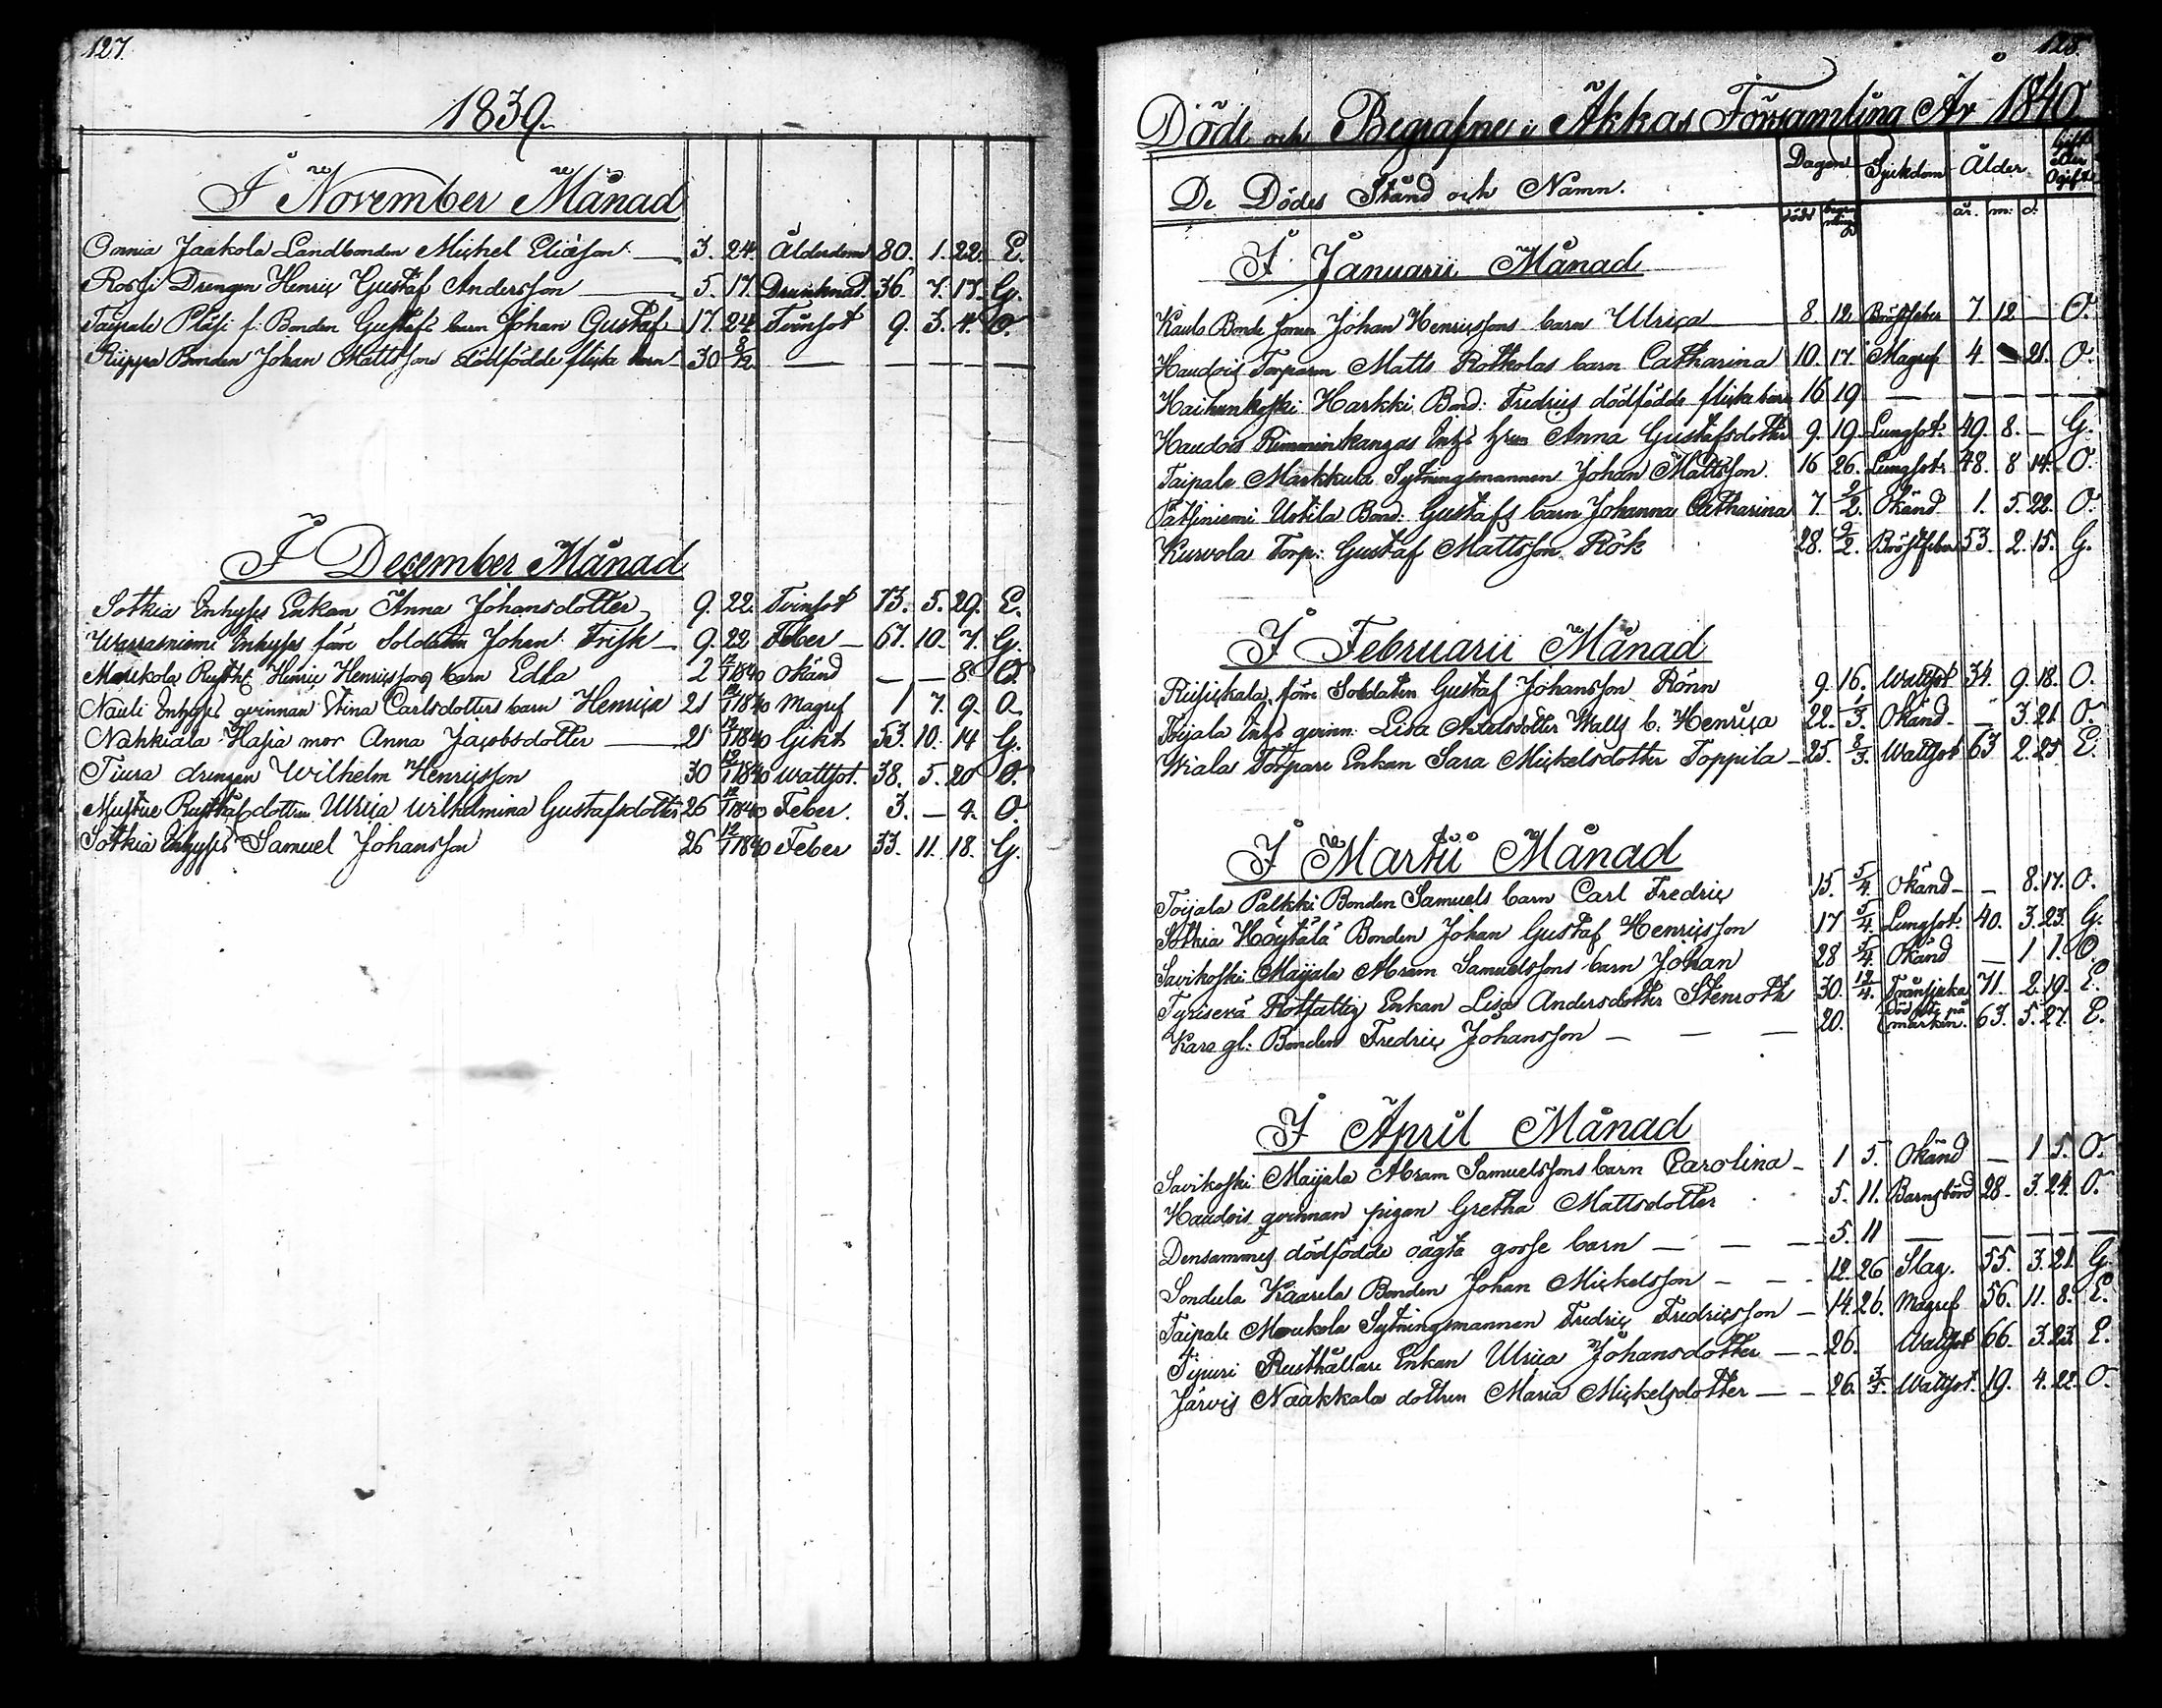 127.
1839.
I November Månad
Onnia Jaakola Landbonden Michel Eliæson 3. 24. Ålderdom 80. 1. 22. E.
Drengen Henric Gustaf Andersson 5. 17. Drunknad 36. 7. 17. G.
Taipale Pläsi f: Bonden Gustafs barn Johan Gustaf 17. 24. Tvinsot 9. 3. 4. O.
Riippa Bonden Johan Mattssons dödfödde flicka barn 30 8/12. — — — — —
I December Månad
Sotkia Inhyses Enkan Anna Johansdotter 9. 22. Tvinsot 73. 5. 29. E.
Warrasniemi Inhyses före Soldaten Johan Frisk 9. 22 Feber — 67. 10. 7. G.
Rustht. Henric Henricssons barn Edla 2 12/1 1840 Okänd — — 8 O.
Nauli Inhyses qvinnan Stina Carlsdotters barn Henrica 21 12/1 1840 Magref 1 7. 9. O.
Nahkiala Hasia mor Anna Jacobsdotter 21 12/1 1840 Gikt 53. 10. 14 G.
Tiura drengen Wilhelm Henricsson 30 12/1 1840 Wattsot. 38. 5. 20 O.
dottren Ulrica Wilhelmina Gustafsdotter 26 12/1 1840 Feber. 3. — 4. O.
Sotkia Inhyses Samuel Johansson 26 12/1 1840 Feber 33. 11. 18. G.
128.
Döde och Begrafne i Åkkas Församling År 1840.
De Dödes Stånd och Namn. Dagen Sjukdom Ålder Gift eller Ogift
död år. m: d:
I Januarii Månad
Bonde Johan Henricssons barn Ulrica 8. 12. Bröstfeber 7 12 — O.
Haudois Torparen Matts Rotkolas barn Catharina 10. 17. Magref 4. — 21. O.
Haihunkoski Harkki Bond: Fredrics dödfödde flicka barn 16 19 — — — — —
Haudois Rimminkangas Inh:s Anna Gustafsdotter 9. 19. Lungsot. 49. 8. — G.
Taipale Markkula Sytningsmannen Johan Mattsson. 16 26. Lungsot. 48. 8 14. O.
Pätsiniemi Uotila Bond: Gustafs barn Johanna Catharina 7. 2/2. Okänd 1. 5. 22. O.
Kurvola Torp: Gustaf Mattsson Rök 28. 9/2. Bröstfeber 53. 2. 15. G.
I Februarii Månad
före Soldaten Gustaf Johansson Rönn 9. 16. Wattsot 34. 9. 18. O.
Toijala Inh:s qvinn: Lisa Axelsdotter Walls b. Henrica 22. 1/3. Okänd — 3. 21. O.
Wiala Torpare Enkan Sara Mickelsdotter Toppila 25. 8/3. Wattsot 63 2. 25. E.
I Martii Månad
Toijala Palkki Bonden Samuels barn Carl Fredric 15. 5/4. Okänd — 8. 17. O.
Sotkia Höytälä Bonden Johan Gustaf Henricsson 17 5/4. Lungsot. 40. 3. 23. G.
Savikoski Maijala Abram Samuelssons barn Johan 28 5/4. Okänd — 1 1. O.
Tyrisevä Rotfattig Enkan Lisa Andersdotter Stenroth 30. 12/4. 71. 2. 19. E.
Kara gl: Bonden Fredric Johansson — — — 20. på marken. 63. 5. 27. E.
I April Månad
Savikoski Maijala Abram Samuelssons barn Carolina 1 5. Okänd — 1 5. O.
Haudois qvinnan pigan Gretha Mattsdotter 5. 11. Barnsbörd 28. 3. 24. O.
Densammes dödfödde oägta gosse barn — — — 5. 11 — — — — —
Sondula Kaarela Bonden Johan Mickelsson — — 12. 26 Slag. 55. 3. 21. G.
Taipale Sytningsmannen Fredric Fredricsson — 14. 26. Magref 56. 11. 8. E.
Rusthållare Enkan Ulrica Johansdotter — 26. Wattsot 66. 3. 23. E.
Järvis Naakkala dottren Maria Mickelsdotter — 26. 3/5. Wattsot. 19. 4. 22. O.